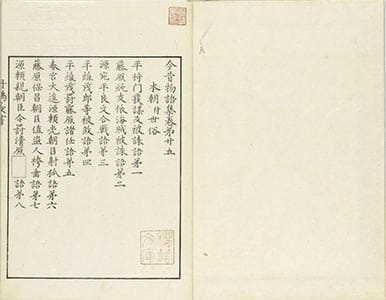 今昔物語集卷第廿五
本朝付世俗
平将門發謀反被誅語第一
藤原純友依海賊被誅語第二
源宛平良文合戰語第三
平維茂郎等被殺語第四
平維茂罸藤原諸任語第五
春宮大進源頼光朝臣射狐語第六
藤原保昌朝臣值盗人袴垂語第七
源頼親朝臣令罸清原 語第八
丹鶴叢書